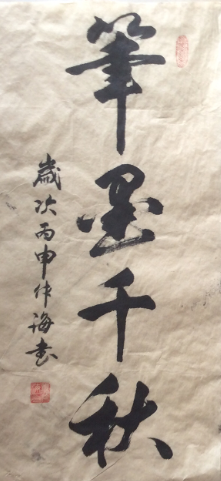 筆墨千秋
歲次丙申作海書